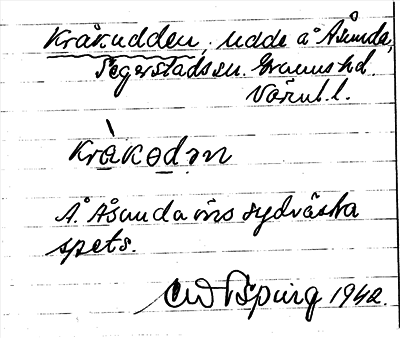 Kråkudden, udde å Åsunda,
Segerstads sn. Grums hd.
Värml. l.
kràkodən
Å Åsundaöns sydvästra
spets.
1942.